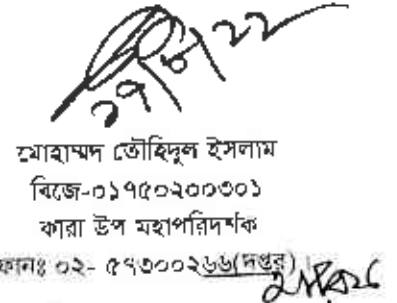 ২৭/৮/২২
মোহাম্মদ তৌহিদুল ইসলাম
বিজে-০১৭৫০২০০৩০১
কারা উপ মহাপরিদর্শক
ফোনঃ ০২- ৫৭৩০০২৬৬(দপ্তর)